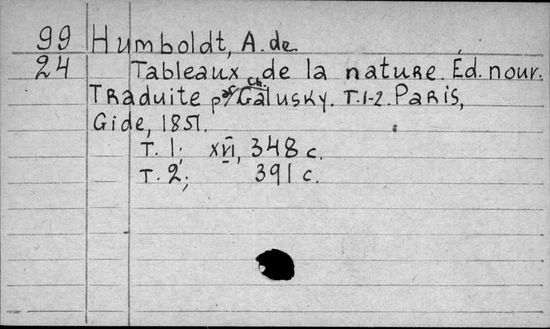 99 Humboldt, A. de.
24 Tableaux de la nature. Éd. nouv.
Traduite par Ch. Galusky. T. 1-2. Paris,
Gide, 1851.
T. 1; XVI, 348 c.
T. 2; 391 c.